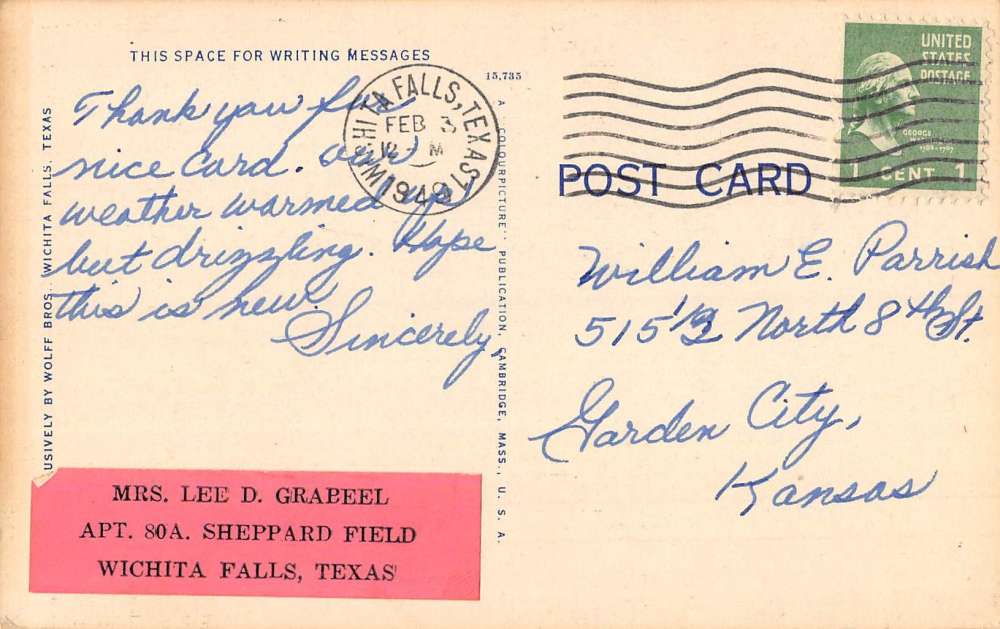 THIS SPACE FOR WRITING MESSAGES
Thank you for
nice card. Our
weather warmed up
but drizzling. Hope
this is new.
Sincerely,
MRS. LEE D. GRABEEL
APT. 80A. SHEPPARD FIELD
WICHITA FALLS, TEXAS
USIVELY BY WOLFF BROS. WICHITA FALLS, TEXAS
15,735
A "COLOURPICTURE" PUBLICATION, CAMBRIDGE, MASS., U. S. A.
WICHITA FALLS, TEXAS
FEB 3
12 M
1949
UNITED
STATES
POSTAGE
GEORGE
1 CENT 1
POST CARD
William E. Parrish
515 1/2 North 8th St.
Garden City,
Kansas